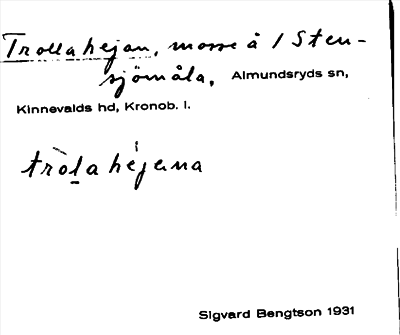 Trollahejan, mosse å 1 Sten-
sjömåla, Almundsryds sn,
Kinnevalds hd, Kronob. l.
tròḻa héjɐna
Sigvard Bengtson 1931